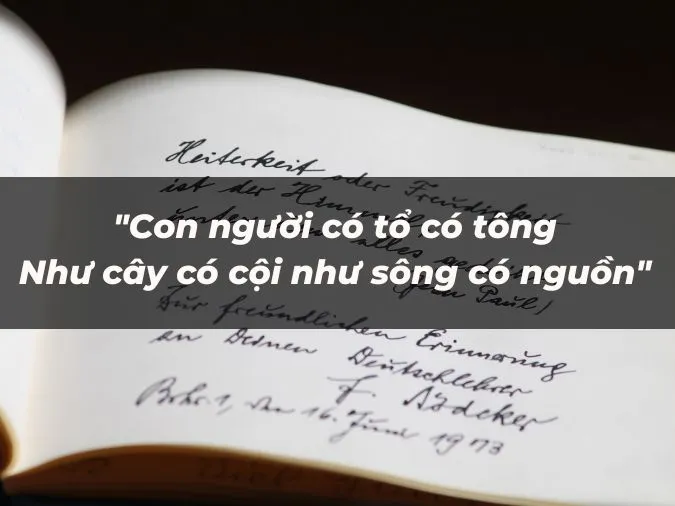 Heiterkeit oder Freudigkeit
ist der Himmel
"Con người có tổ có tông
unter alles
Như cây có cội như sông có nguồn"
(Jean Paul)
Zur freundlichen Erinnerung
an Deinen Deutschlehrer
F.
den 16. Juni 1973